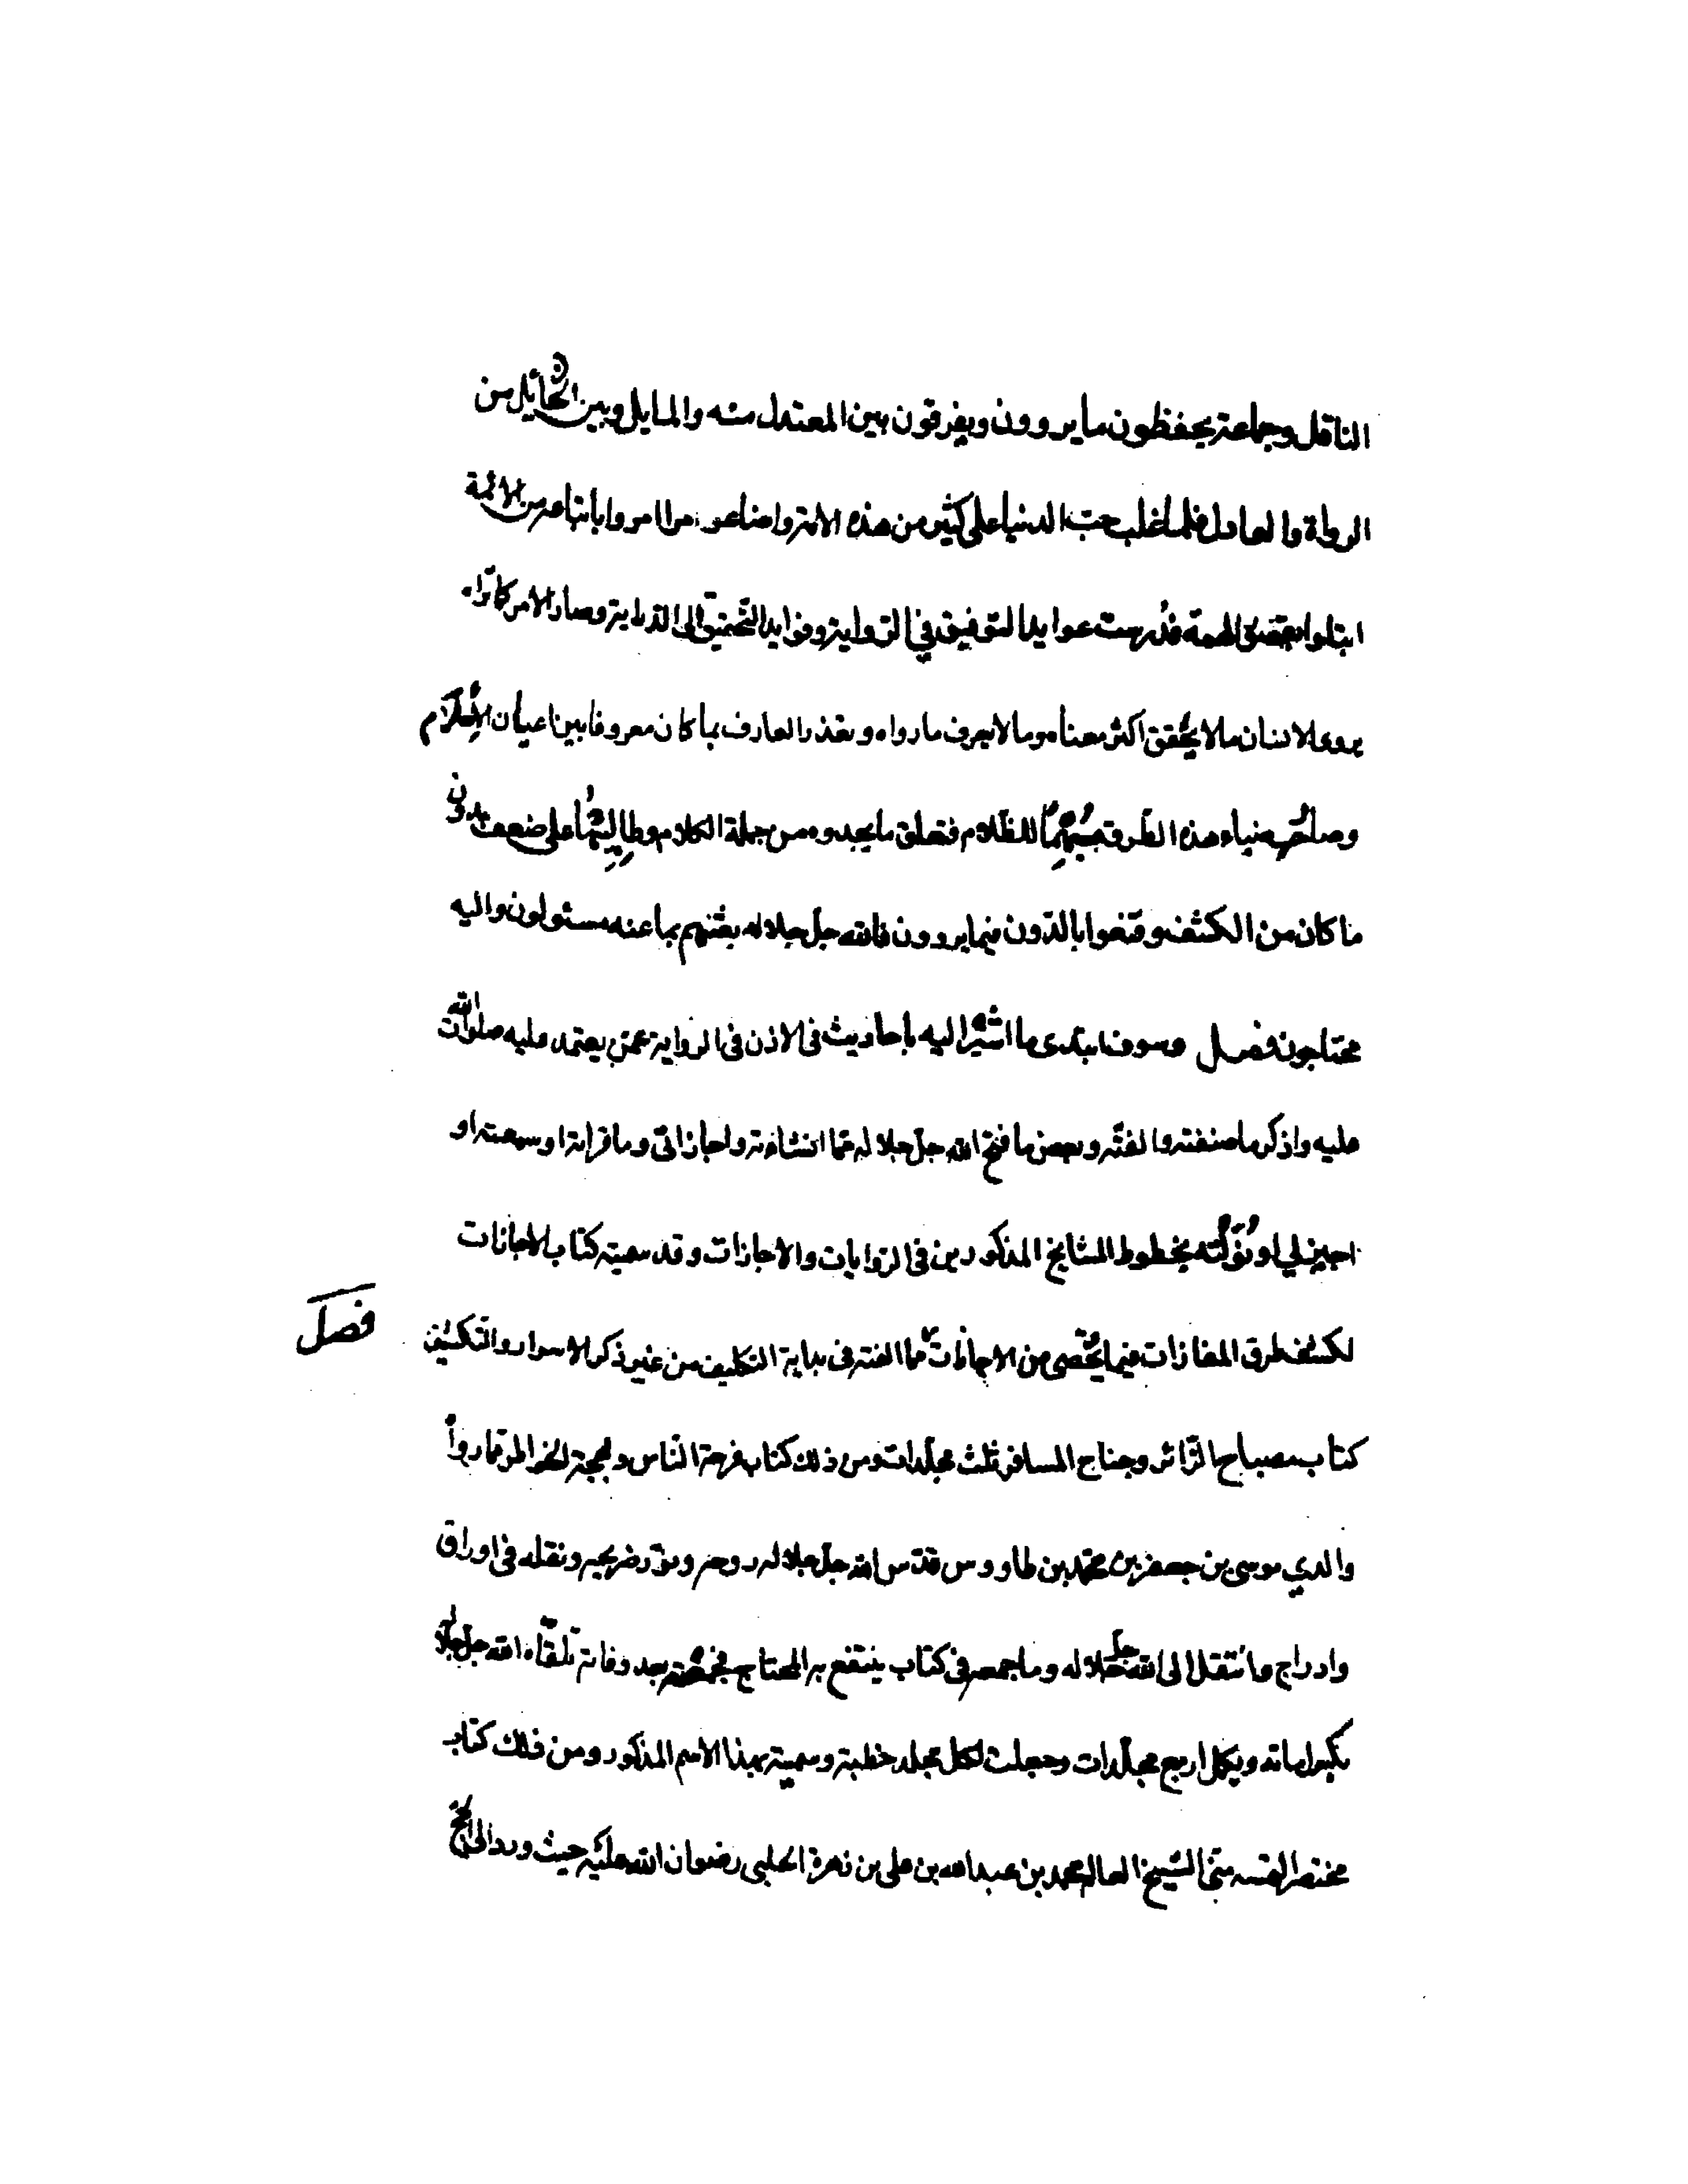 الناقل وجماعة يحفظون ما يروون ويفرقون بين المعتدل منه والمايل وبين الحائل من
الرواة والعادل فلما غلب حب الدنيا على كثير من هذه الامة واضاعوا من امروا باتباعه من الائمة
ابتلوا الهمة فدرست عوايد التوفيق في الرواية وفوايد التحقيق في الدراية وصار الامر كما تراه
يروى الانسان ما لا يحقق اكثر معناه وما لا يعرف ما رواه وتعذر العارف بما كان معروفا بين اعيان الاسلام
ضياء هذه الطرق للظلام فتعلق ما يجدوه من جملة الكلام على ضعف بدون
ما كان من الكشف وقنعوا بالدون فيما يروون فالله جل جلاله بما عنه مسئولون واليه
محتاجون فصل وسوف ابتدى ما اشير اليه باحاديث في الاذن في الرواية عمن يعتمد عليه صلوات الله
عليه واذكر ما صنفته والفته وبعض ما فتح الله جل جلاله مما انشاته واجازاتي وما قراته او سمعته او
اجيز لي او نوولته بخطوط المشايخ المذكورين في الروايات والاجازات وقد سميته كتاب الاجازات
لكشف طرق المفازات فيما يخصى من الاجازات مما الفته في بداية التكليف من غير ذكر الاسرار والتكشيف
فصل
كتاب مصباح الزائر وجناح المسافر ثلث مجلدات ومن ذلك كتاب فرحة الناس وبهجة الخواطر مما رواه
والدي موسى بن جعفر بن محمد بن طاووس قدس الله جل جلاله روحه ونور ضريحه ونقله في اوراق
وادراج وانتقل الى الله جل جلاله وما جمعه في كتاب ينتفع به المحتاج فجمعته بعد وفاته تلقاه الله جل جلاله
بكراماته ويكمل اربع مجلدات وجعلت لكل مجلد خطبة وسميته بهذا الاسم المذكور ومن ذلك كتاب
مختصر التمسه مني الشيخ العالم محمد بن عبد الله بن علي بن زهرة الحلبي رضوان الله عليه حيث ورد الى الحج